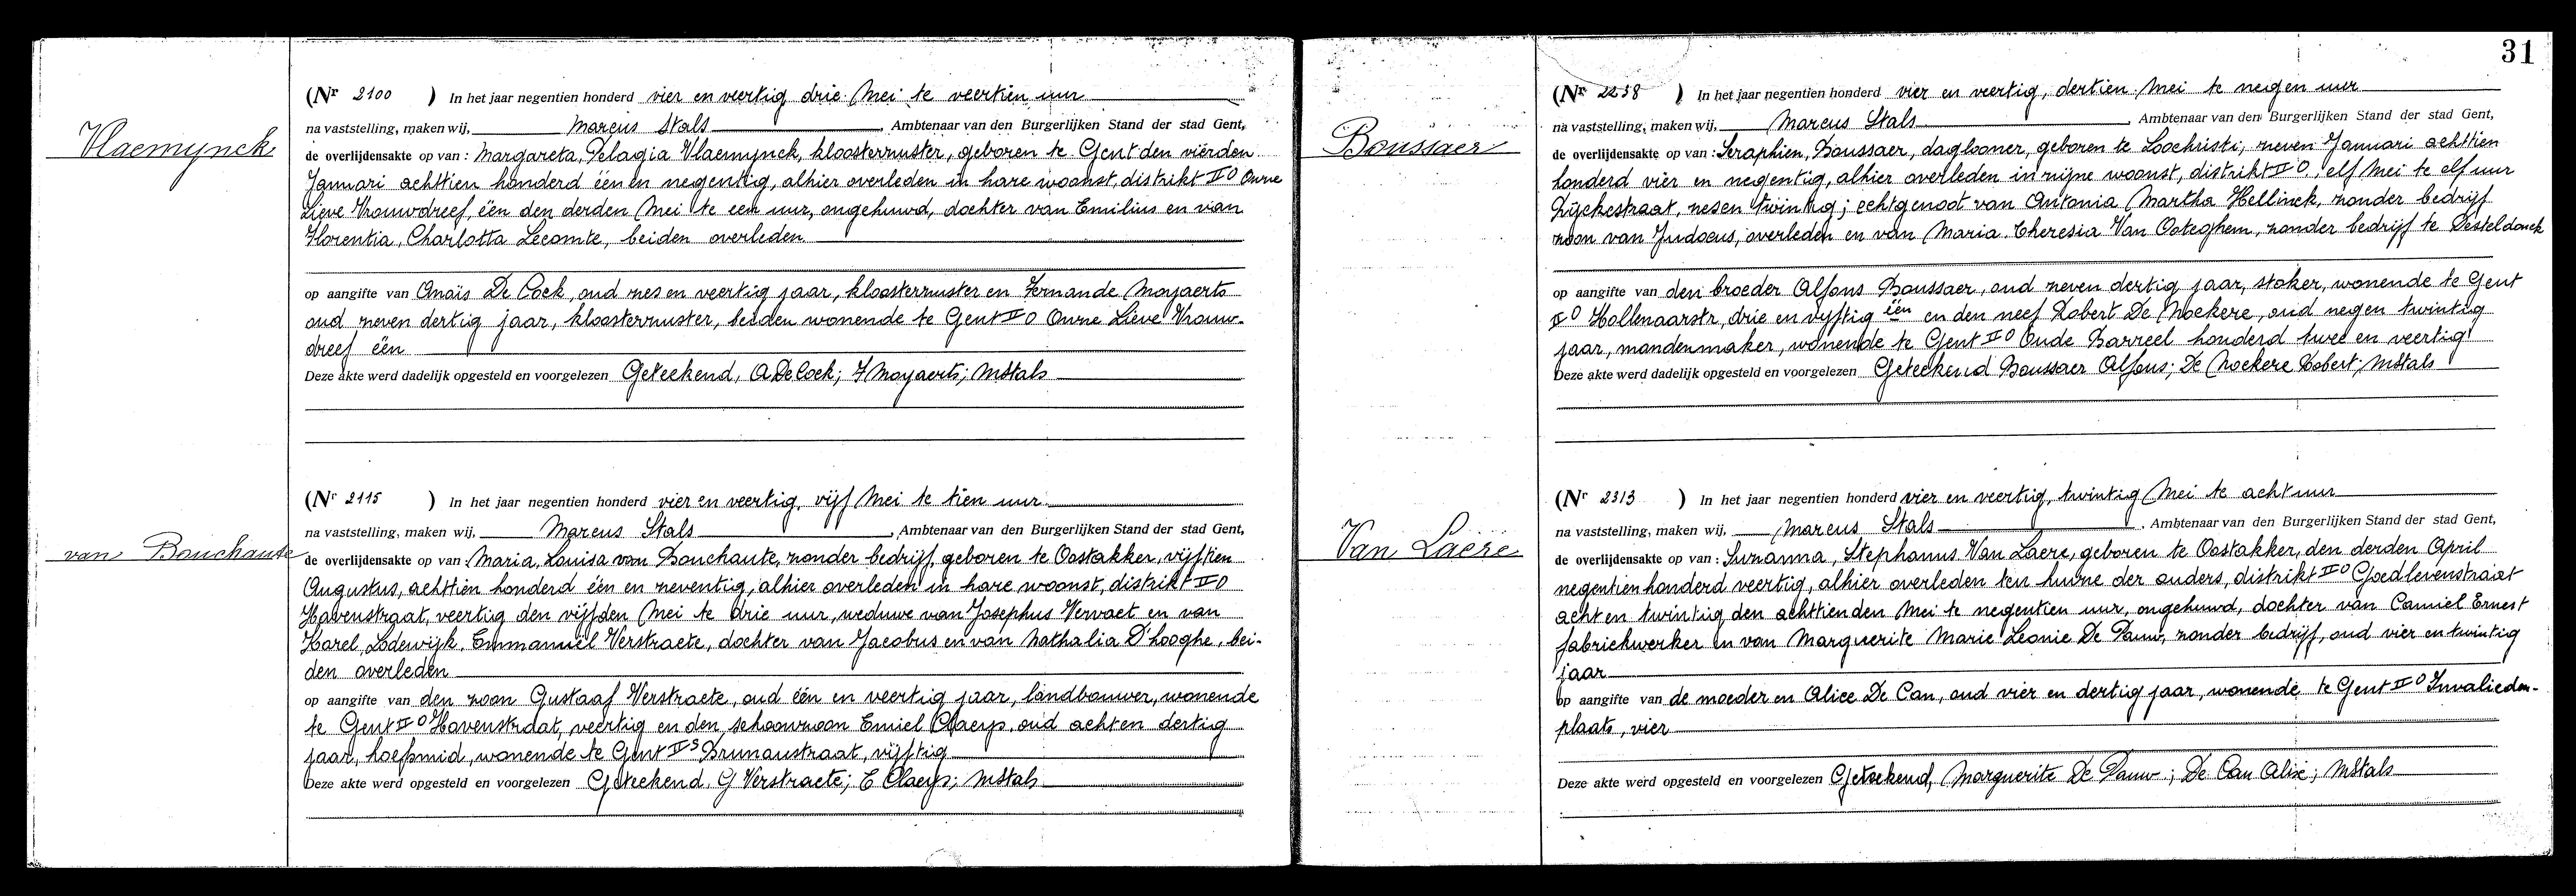 Vlaemynck
(Nr 2100 ) In het jaar negentien honderd vier en veertig drie Mei te veertien uur
na vaststelling, maken wij, Marcus Stals, Ambtenaar van den Burgerlijken Stand der stad Gent,
de overlijdensakte op van : Margareta, Pelagia Vlaemynck, kloosterzuster, geboren te Gent den vierden
Januari achttien honderd één en negentig, alhier overleden in hare woonst, distrikt II O Onze
Lieve Vrouwdreef, één den derden Mei te een uur, ongehuwd, dochter van Emilius en van
Florentia, Charlotta Lecomte, beiden overleden
op aangifte van Anaïs De Cock, oud zes en veertig jaar, kloosterzuster en Fernande Moyaerts
oud zeven dertig jaar, kloosterzuster, beiden wonende te Gent II O Onze Lieve Vrouw-
dreef één
Deze akte werd dadelijk opgesteld en voorgelezen Geteekend, A De Cock; F Moyaerts; MStals
van Bouchaute
(Nr 2115 ) In het jaar negentien honderd vier en veertig, vijf Mei te tien uur
na vaststelling, maken wij, Marcus Stals, Ambtenaar van den Burgerlijken Stand der stad Gent,
de overlijdensakte op van : Maria, Louisa van Bouchaute, zonder bedrijf, geboren te Oostakker, vijftien
Augustus, achttien honderd één en zeventig, alhier overleden in hare woonst, distrikt II O
Havenstraat, veertig den vijfden Mei te drie uur, weduwe van Josephus Vervaet en van
Karel, Lodewijk, Emmanuel Verstraete, dochter van Jacobus en van Nathalia D'hooghe, bei-
den overleden
op aangifte van den zoon Gustaaf Verstraete, oud één en veertig jaar, landbouwer, wonende
te Gent II O Havenstraat, veertig en den schoonzoon Emiel Claeys, oud acht en dertig
jaar, hoefsmid, wonende te Gent II S Brunaustraat, vijftig
Deze akte werd opgesteld en voorgelezen Geteekend, G Verstraete; E Claeys; MStals
31
Boussaer
(Nr 2238 ) In het jaar negentien honderd vier en veertig, dertien Mei te negen uur
na vaststelling, maken wij, Marcus Stals, Ambtenaar van den Burgerlijken Stand der stad Gent,
de overlijdensakte op van : Seraphien, Boussaer, daglooner, geboren te Loochristi, zeven Januari achttien
honderd vier en negentig, alhier overleden in zijne woonst, distrikt II O, elf Mei te elf uur
Rijckestraat, zes en twintig; echtgenoot van Antonia Martha Hellinck, zonder bedrijf
zoon van Judocus, overleden en van Maria Theresia Van Ooteghem, zonder bedrijf te Desteldonck
op aangifte van den broeder Alfons Boussaer, oud zeven dertig jaar, stoker, wonende te Gent
II O Hollenaarstr, drie en vijftig één en den neef Robert De Moekere, oud negen twintig
jaar, mandenmaker, wonende te Gent II O Oude Barreel honderd twee en veertig
Deze akte werd dadelijk opgesteld en voorgelezen Geteekend Boussaer Alfons; De Moekere Robert; MStals
Van Laere
(Nr 2313 ) In het jaar negentien honderd vier en veertig, twintig Mei te acht uur
na vaststelling, maken wij, Marcus Stals, Ambtenaar van den Burgerlijken Stand der stad Gent,
de overlijdensakte op van : Suzanna, Stephanus Van Laere, geboren te Oostakker, den derden April
negentien honderd veertig, alhier overleden ten huize der ouders, distrikt II O Goedlevenstraat
acht en twintig den achttienden Mei te negentien uur, ongehuwd, dochter van Camiel Ernest
fabriekwerker en van Marguerite Marie Leonie De Pauw, zonder bedrijf, oud vier en twintig
jaar
op aangifte van de moeder en Alice De Can, oud vier en dertig jaar, wonende te Gent II O Invalieden-
plaats, vier
Deze akte werd opgesteld en voorgelezen Geteekend, Marguerite De Pauw; De Can Alice; MStals